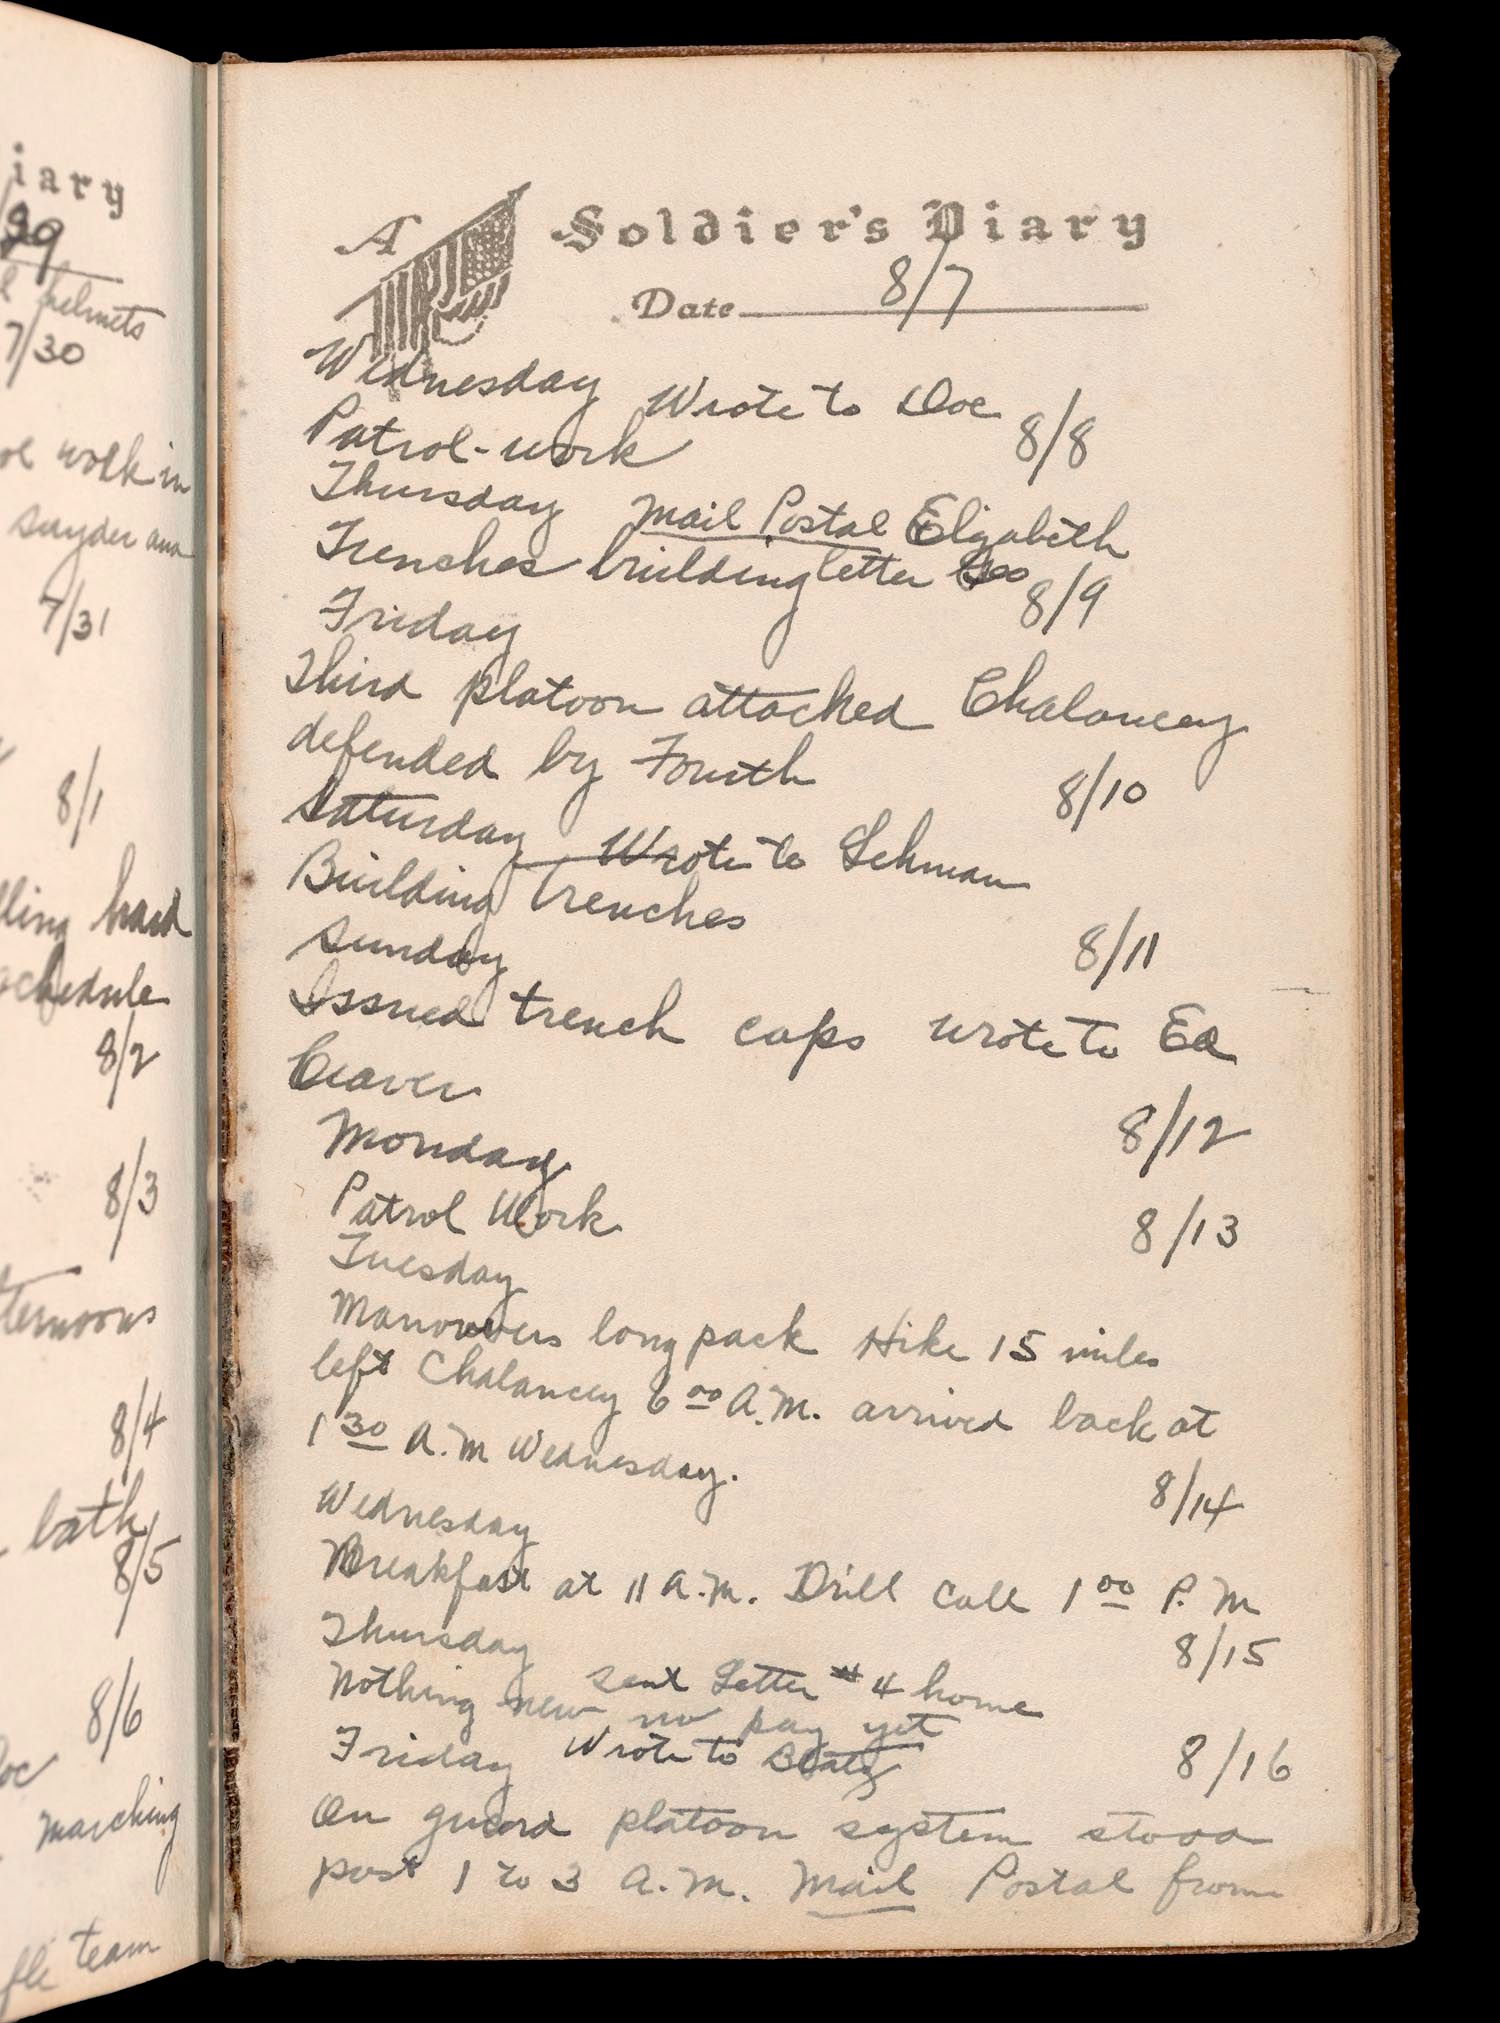 iary
29
helmets
7/30
work in
Snyder and
7/31
8/1
lling hard
schedule
8/2
8/3
ternoons
8/4
bath
8/5
8/6
oc
marching
fle team
A Soldier's Diary
Date 8/7
Wednesday Wrote to Doc
Patrol-work 8/8
Thursday Mail Postal Elizabeth
Trenches building letter Geo
8/9
Friday
Third platoon attacked Chalancey
defended by Fourth
8/10
Saturday Wrote to Lehman
Building trenches
8/11
Sunday
Issued trench caps wrote to Ed
Ceaver
8/12
Monday
Patrol Work
8/13
Tuesday
Manouvers long pack Hike 15 miles
left Chalancey 6 00 A.M. arrived back at
1 30 A.M Wednesday.
8/14
Wednesday
Breakfast at 11 A.M. Drill Call 1 00 P.M
8/15
Thursday
sent Letter #4 home
Nothing new no pay yet
8/16
Friday Wrote to
On guard platoon system stood
post 1 to 3 A.M. Mail Postal from